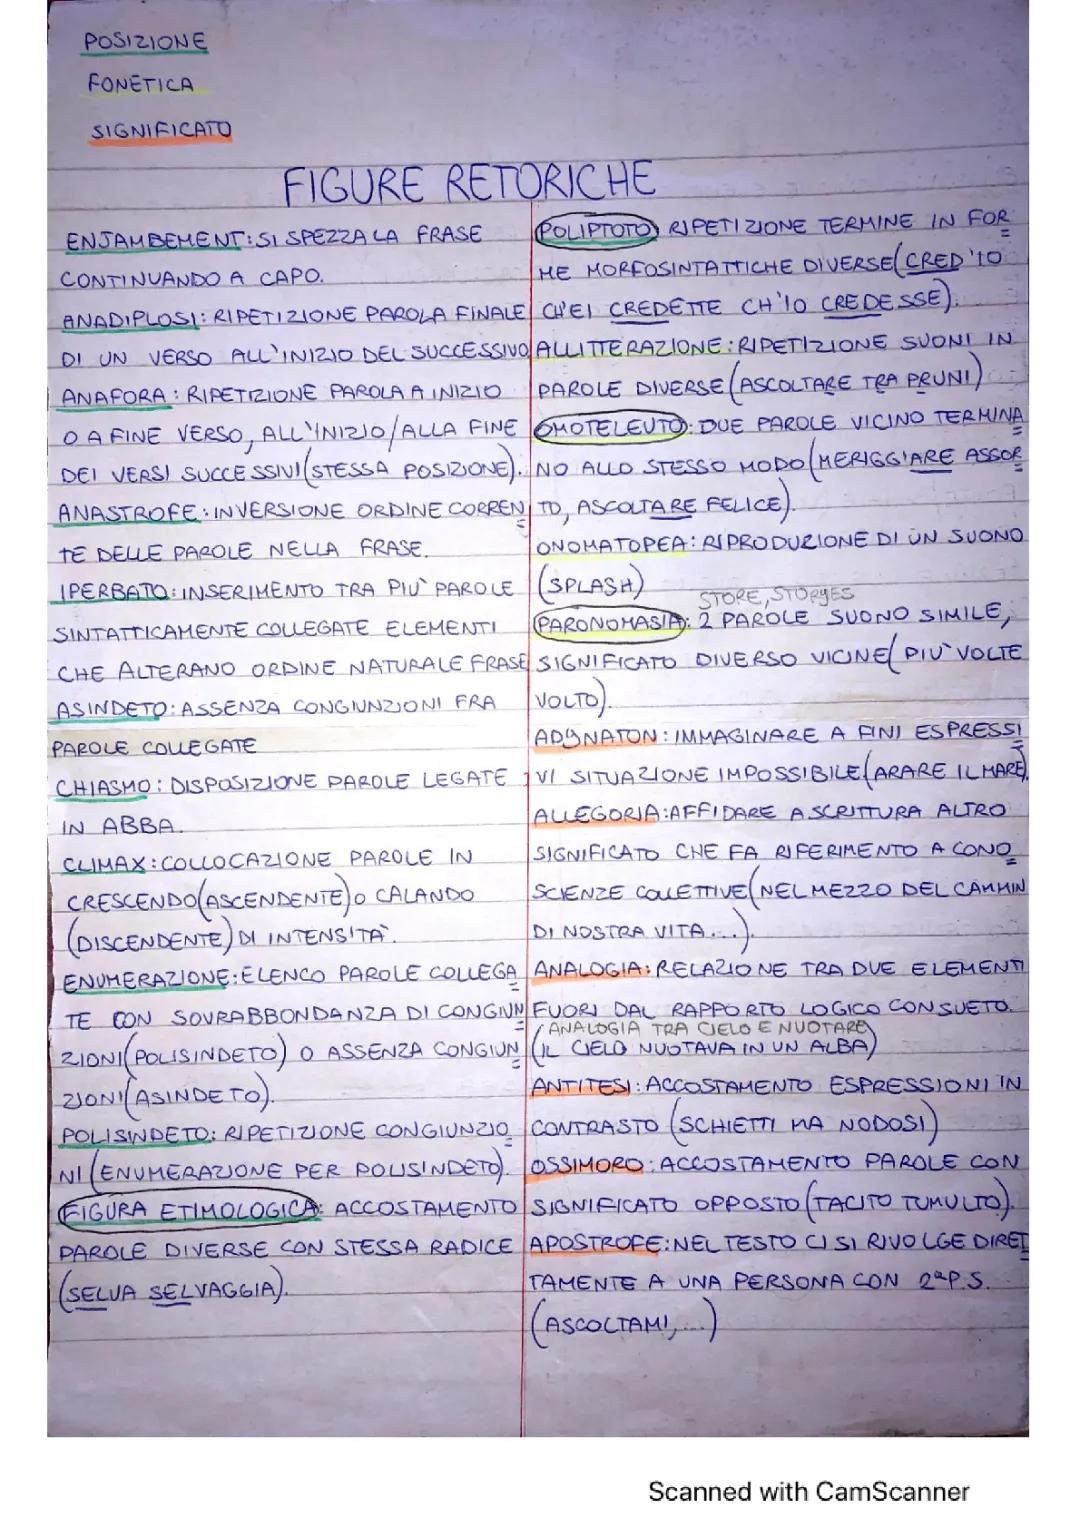 POSIZIONE
FONETICA
SIGNIFICATO
FIGURE RETORICHE
ENJAMBEMENT: SI SPEZZA LA FRASE
CONTINUANDO A CAPO.
ANADIPLOSI: RIPETIZIONE PAROLA FINALE
DI UN VERSO ALL'INIZIO DEL SUCCESSIVO
ANAFORA: RIPETIZIONE PAROLA A INIZIO
O A FINE VERSO, ALL'INIZIO/ALLA FINE
DEI VERSI SUCCESSIVI (STESSA POSIZIONE).
ANASTROFE: INVERSIONE ORDINE CORREN
TE DELLE PAROLE NELLA FRASE.
IPERBATO: INSERIMENTO TRA PIU` PAROLE
SINTATTICAMENTE COLLEGATE ELEMENTI
CHE ALTERANO ORDINE NATURALE FRASE
ASINDETO: ASSENZA CONGIUNZIONI FRA
PAROLE COLLEGATE
CHIASMO: DISPOSIZIONE PAROLE LEGATE
IN ABBA.
CLIMAX: COLLOCAZIONE PAROLE IN
CRESCENDO (ASCENDENTE) O CALANDO
(DISCENDENTE) DI INTENSITA`.
ENUMERAZIONE: ELENCO PAROLE COLLEGA
TE CON SOVRABBONDANZA DI CONGIUN
ZIONI (POLISINDETO) O ASSENZA CONGIUN
ZIONI (ASINDETO).
POLISINDETO: RIPETIZIONE CONGIUNZIO
NI (ENUMERAZIONE PER POLISINDETO).
FIGURA ETIMOLOGICA: ACCOSTAMENTO
PAROLE DIVERSE CON STESSA RADICE
(SELVA SELVAGGIA).
POLIPTOTO RIPETIZIONE TERMINE IN FOR
ME MORFOSINTATTICHE DIVERSE (CRED'IO
CH'EI CREDETTE CH'IO CREDESSE).
ALLITTERAZIONE: RIPETIZIONE SUONI IN
PAROLE DIVERSE (ASCOLTARE TRA PRUNI)
OMOTELEUTO: DUE PAROLE VICINO TERMINA
NO ALLO STESSO MODO (MERIGGIARE ASSOR
TO, ASCOLTARE FELICE).
ONOMATOPEA: RIPRODUZIONE DI UN SUONO
(SPLASH)
STORE, STORYES
PARONOMASIA: 2 PAROLE SUONO SIMILE,
SIGNIFICATO DIVERSO VICINE (PIU` VOLTE
VOLTO).
ADYNATON: IMMAGINARE A FINI ESPRESSI
VI SITUAZIONE IMPOSSIBILE (ARARE IL MARE).
ALLEGORIA: AFFIDARE A SCRITTURA ALTRO
SIGNIFICATO CHE FA RIFERIMENTO A CONO
SCIENZE COLLETTIVE (NEL MEZZO DEL CAMMIN
DI NOSTRA VITA...).
ANALOGIA: RELAZIONE TRA DUE ELEMENTI
FUORI DAL RAPPORTO LOGICO CONSUETO.
(ANALOGIA TRA CIELO E NUOTARE)
(IL CIELO NUOTAVA IN UN ALBA)
ANTITESI: ACCOSTAMENTO ESPRESSIONI IN
CONTRASTO (SCHIETTI MA NODOSI)
OSSIMORO: ACCOSTAMENTO PAROLE CON
SIGNIFICATO OPPOSTO (TACITO TUMULTO).
APOSTROFE: NEL TESTO CI SI RIVOLGE DIRET
TAMENTE A UNA PERSONA CON 2ª P.S.
(ASCOLTAMI,...)
Scanned with CamScanner